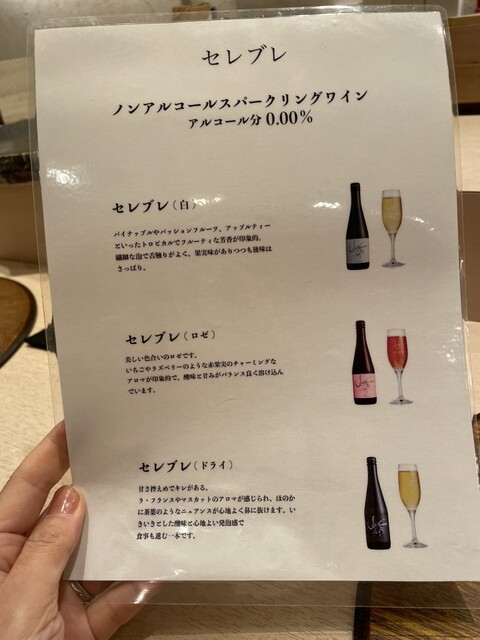 セレブレ
ノンアルコールスパークリングワイン
アルコール分 0.00%
セレブレ(白)
パイナップルやパッションフルーツ、アップルティー
といったトロピカルでフルーティな芳香が印象的。
繊細な泡で舌触りがよく、果実味がありつつも後味は
さっぱり。
セレブレ(ロゼ)
美しい色合いのロゼです。
いちごやラズベリーのような赤果実のチャーミングな
アロマが印象的で、酸味と甘みがバランス良く溶け込ん
でいます。
セレブレ(ドライ)
甘さ控えめでキレがある。
ラ・フランスやマスカットのアロマが感じられ、ほのか
に茶葉のようなニュアンスが心地よく鼻に抜けます。い
きいきとした酸味と心地よい発泡感で
食事も進む一本です。